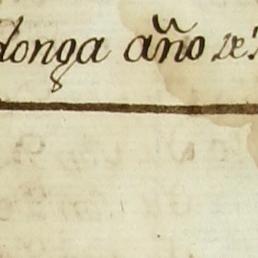 donga año de